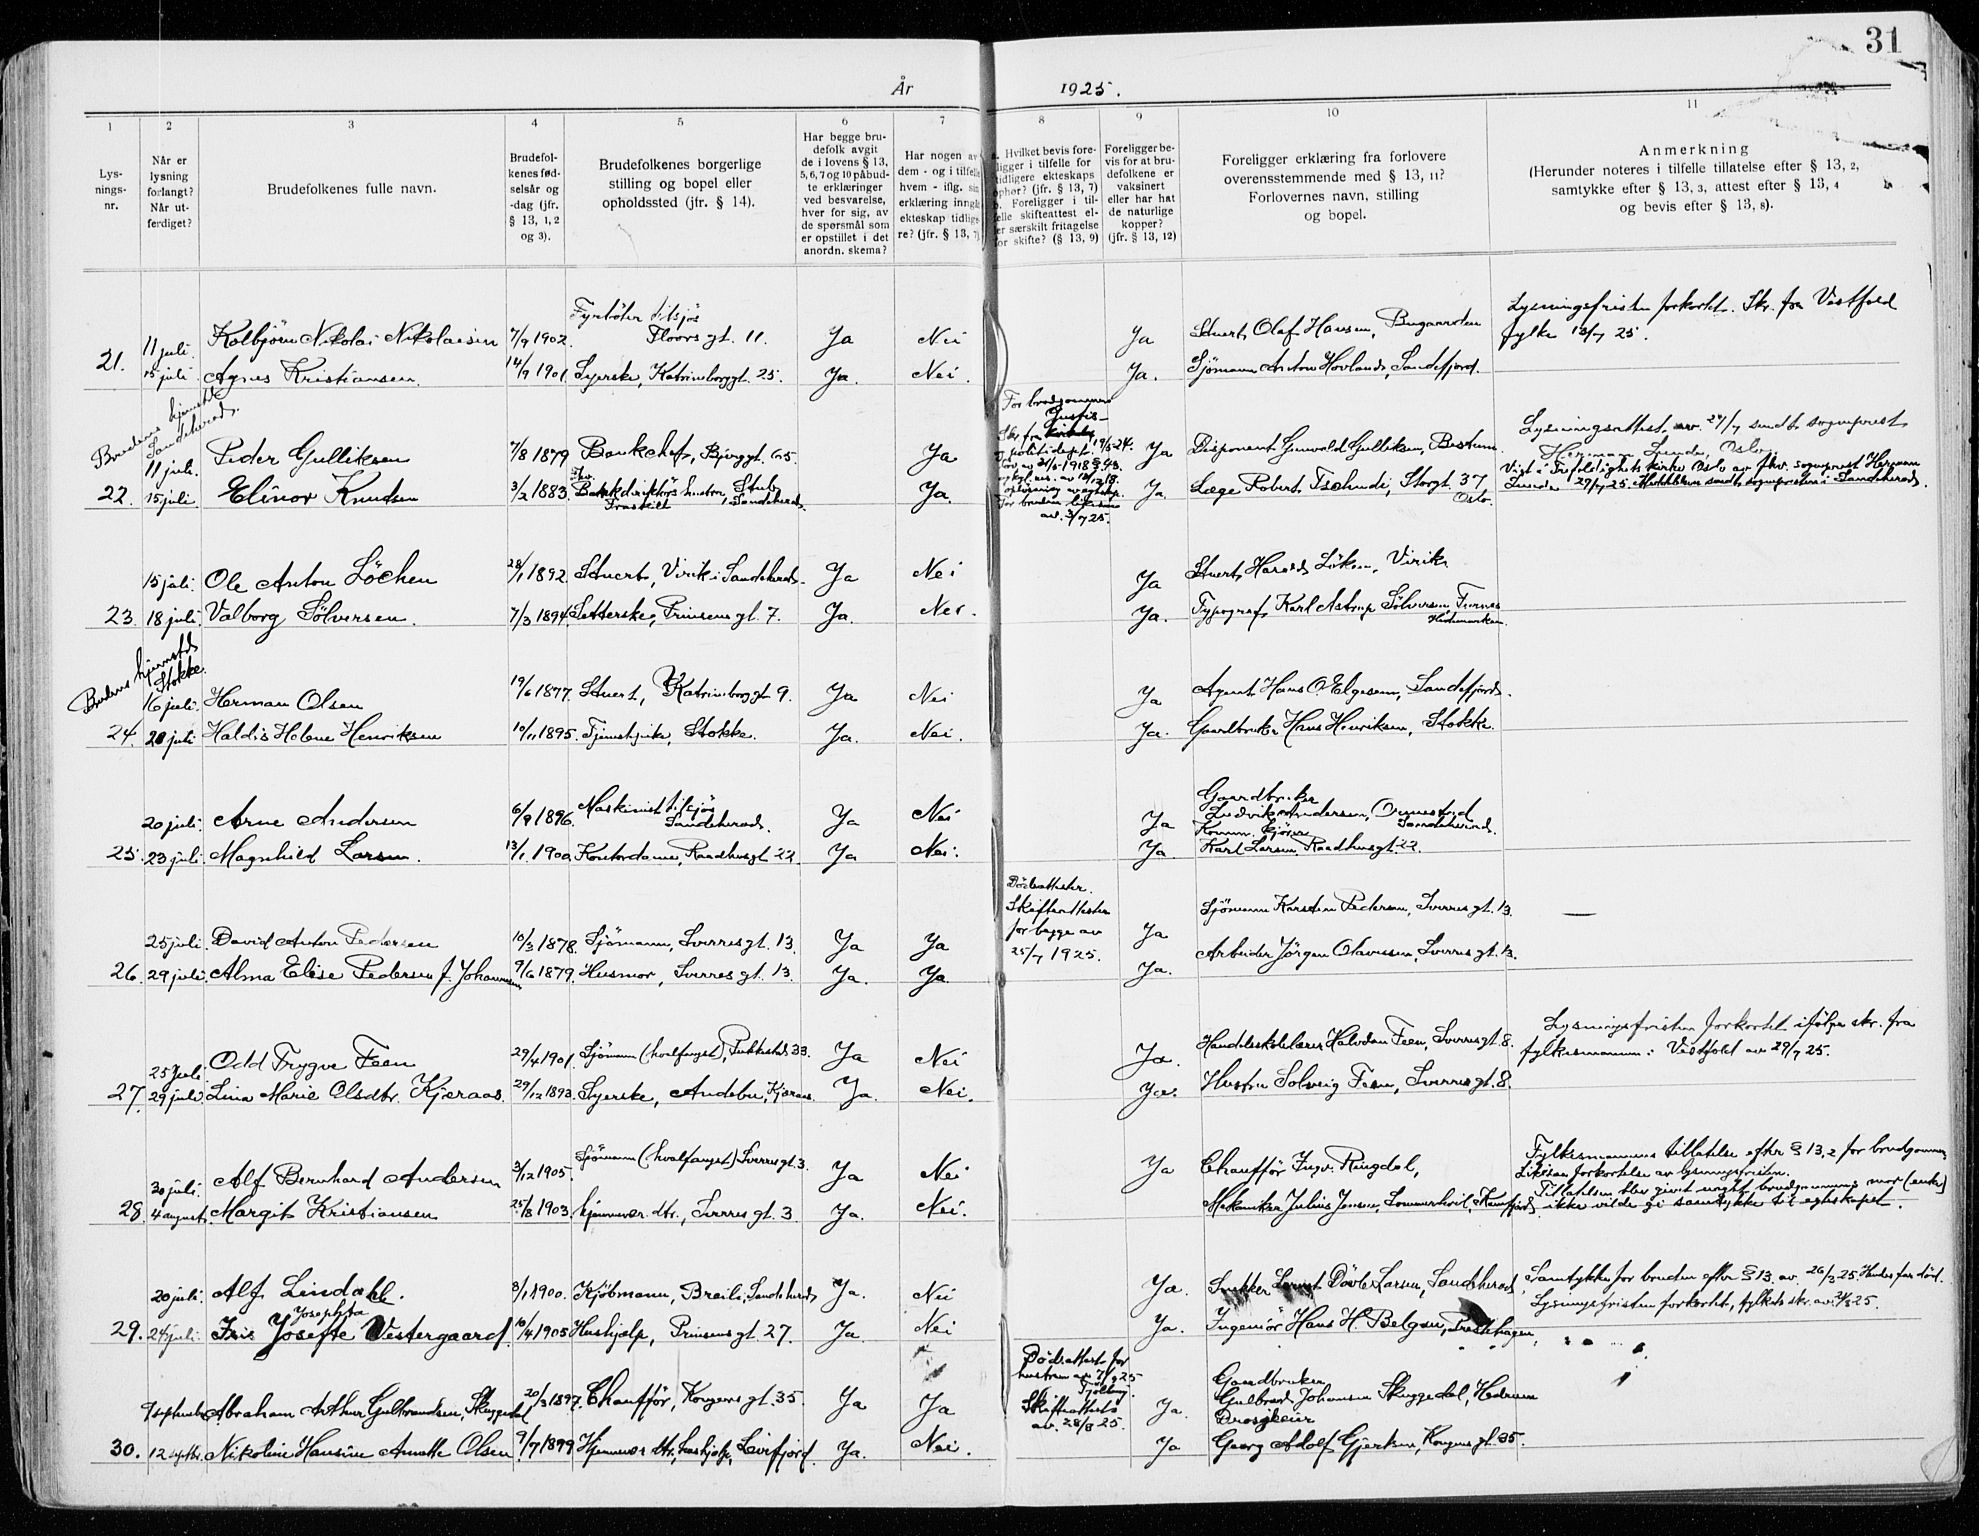 31
År 1925.
1 2 3 4 5 6 7 8 9 10 11
Lys-
nings-
nr.
Når er
lysning
forlangt?
Når ut-
ferdiget?
Brudefolkenes fulle navn.
Brudefol-
kenes fød-
selsår og
-dag (jfr.
§ 13, 1, 2
og 3).
Brudefolkenes borgerlige
stilling og bopel eller
opholdssted (jfr. § 14).
Har begge bru-
defolk avgit
de i lovens § 13,
5, 6, 7 og 10 påbud-
te erklæringer
ved besvarelse,
hver for sig, av
de spørsmål som
er opstillet i det
anordn. skema?
Har nogen av
dem - og i tilfelle
hvem - iflg. sin
erklæring inngå
ekteskap tidlige
re? (jfr. § 13, 7)
Hvilket bevis fore-
ligger i tilfelle for
tidligere ekteskaps
ophør? (jfr. § 13, 7)
b. Foreligger i til-
felle skifteattest el-
er særskilt fritagelse
for skifte? (§ 13, 9)
Foreligger be-
vis for at bru-
defolkene er
vaksinert
eller har hat
de naturlige
kopper?
(jfr. § 13, 12)
Foreligger erklæring fra forlovere
overensstemmende med § 13, 11?
Forlovernes navn, stilling
og bopel.
Anmerkning
(Herunder noteres i tilfelle tillatelse efter § 13, 2,
samtykke efter § 13, 3, attest efter § 13, 4
og bevis efter § 13, 8).
Fyrbøter tilsjøs Lysningsfristen forkortet. Skr. fra Vestfold
11 juli. Kolbjörn Nikolai Nikolaisen 7/9 1902. Floors gt. 11. Ja Nei Ja Stuert Olaf Hansen, Bugaarden fylke 13/7 25.
21. 15 juli. Agnes Kristiansen. 14/9 1901 Syerske, Katrineborggt. 25. Ja. Nei. Ja. Sjömann Anton Hovland, Sandefjord.
Brudens hjemsted
Sandeherad.
For brudgommen
Justis-
Skr. fra
politidept. 19/5 24.
av 31/5 1918 § 43.
For bruden likesaa
av. 3/7 25.
11 juli. Peder Gulliksen 7/8 1879 Bankchef, Bjerggt. 65. Ja Ja Disponent Gunvald Gulliksen, Bestum
Lysningsattest av 24/7 sendt sogneprest
Herman Lunde, Oslo
22. 15 juli. Elinor Knudsen 3/2 1883. fhv. Bankdirektörs hustru, Stub, Sandeherad. Fraskilt Ja. Ja. Læge Robert Tschudi, Storgt. 37 Oslo.
Viet i Trefoldighets kirke Oslo av fhv. sogneprest Herman
Lunde 29/7 25. sendt sognepresten i Sandeherad.
15 juli. Ole Anton Löchen 28/1 1892. Stuert, Virik i Sandeherad. Ja Nei Ja Stuert Harald Löken, Virik
23. 18 juli. Valborg Sölversen. 7/3 1894. Setterske, Prinsens gt. 7. Ja. Nei. Ja. Typograf Karl Astrup Sölversen, Furnes
Hedemarken.
Brudens hjemsted
Stokke.
16 juli. Herman Olsen 19/6 1877. Stuert, Katrineborggt 9. Ja Nei Ja Agent Hans O. Elgesem, Sandefjord.
24. 20 juli Haldis Helene Henriksen 10/11 1895. Tjenestepike, Stokke. Ja. Nei. Ja. Gaardbruker Hans Henriksen, Stokke.
20 juli. Arne Andersen 6/9 1896. Maskinist tilsjøs Sandeherad. Ja Nei Ja
Gaardbruker
Ludvik Andersen, Ormestad
Sandeherad.
Komm. kjörer
25. 23 juli. Magnhild Larsen. 13/1 1900. Kontordame, Raadhusgt 22. Ja Nei. Ja. Karl Larsen, Raadhusgt. 22.
Dödsattester.
Skifteattester
for begge av
25/7 1925.
25 juli. David Anton Pedersen 10/3 1878. Sjömann, Sverresgt. 13. Ja Ja Ja Sjömann Karsten Pedersen, Sverresgt. 13. —
26. 29 juli. Alma Elise Pedersen f. Johannesen 9/6 1879. Husmor, Sverres gt. 13. Ja. Ja. Ja. Arbeider Jörgen Olavesen, Sverresgt. 13.
25 Juli. Odd Trygve Feen 29/4 1901. Sjömann (hvalfangst), Pukkestad 33. Ja Nei Ja. Handelsskolelærer Halvdan Feen, Sverresgt. 8. Lysningsfristen forkortet ifölge skr. fra
fylkesmannen i Vestfold av 29/7 25.
27. 29 juli. Lina Marie Olsdtr. Kjæraas. 29/12 1893. Syerske, Andebu, Kjæraas. Ja. Nei. Ja. Hustru Solveig Feen, Sverresgt. 8.
30 juli. Alf Bernhard Andersen 3/12 1905. Sjömann (hvalfangst) Sverresgt. 3. Ja Nei Ja Chauffør Ingv. Ringdal, Fylkesmannens tillatelse efter § 13, 2 for brudgommen.
Likesaa forkortelse av lysningsfristen.
28. 4 august. Margit Kristiansen 25/8 1903. hjemmevær. dtr., Sverres gt. 3 Ja. Nei. Mekaniker Julius Jensen, Sommerhvil, Kamfjord. Tillatelsen blev givet uagtet brudgommens mor (enke)
ikke vilde gi samtykke til egteskapet.
20 juli. Alf. Lindahl. 8/1 1900. Kjöbmann, Breili, Sandeherad Ja. Nei Ja. Snekker Dövle Larsen, Sandeherad, Samtykke for bruden efter § 13. av 26/3 25. Hendes far död.
Lysningsfristen forkortet, fylkets skr. av 21/8 25.
Josephta
29. 24 juli. Iris Josefte Vestergaard. 10/4 1905 Hushjælp, Prinsens gt. 27. Ja. Nei Ja. Ingeniör Hans H. Belgau, Prestehagen.
Dödsattest for
hustruen av 7/9 25
Tjölling.
Skifteattest
av. 28/8 25.
9 septembr. Abraham Arthur Gulbrandsen, Skuggedal 20/3 1897. Chauffør, Kongens gt. 35. Ja Ja Ja.
Gaardbruker
Gulbrand Johansen Skuggedal, Hedrum
Drosjeeier
30. 12 septbr. Nikoline Hansine Annette Olsen 9/7 1899 Hjemmevær dtr., hushjelp, Lervifjord. Ja. Nei. Ja Georg Adolf Gjertsen, Kongens gt. 35.